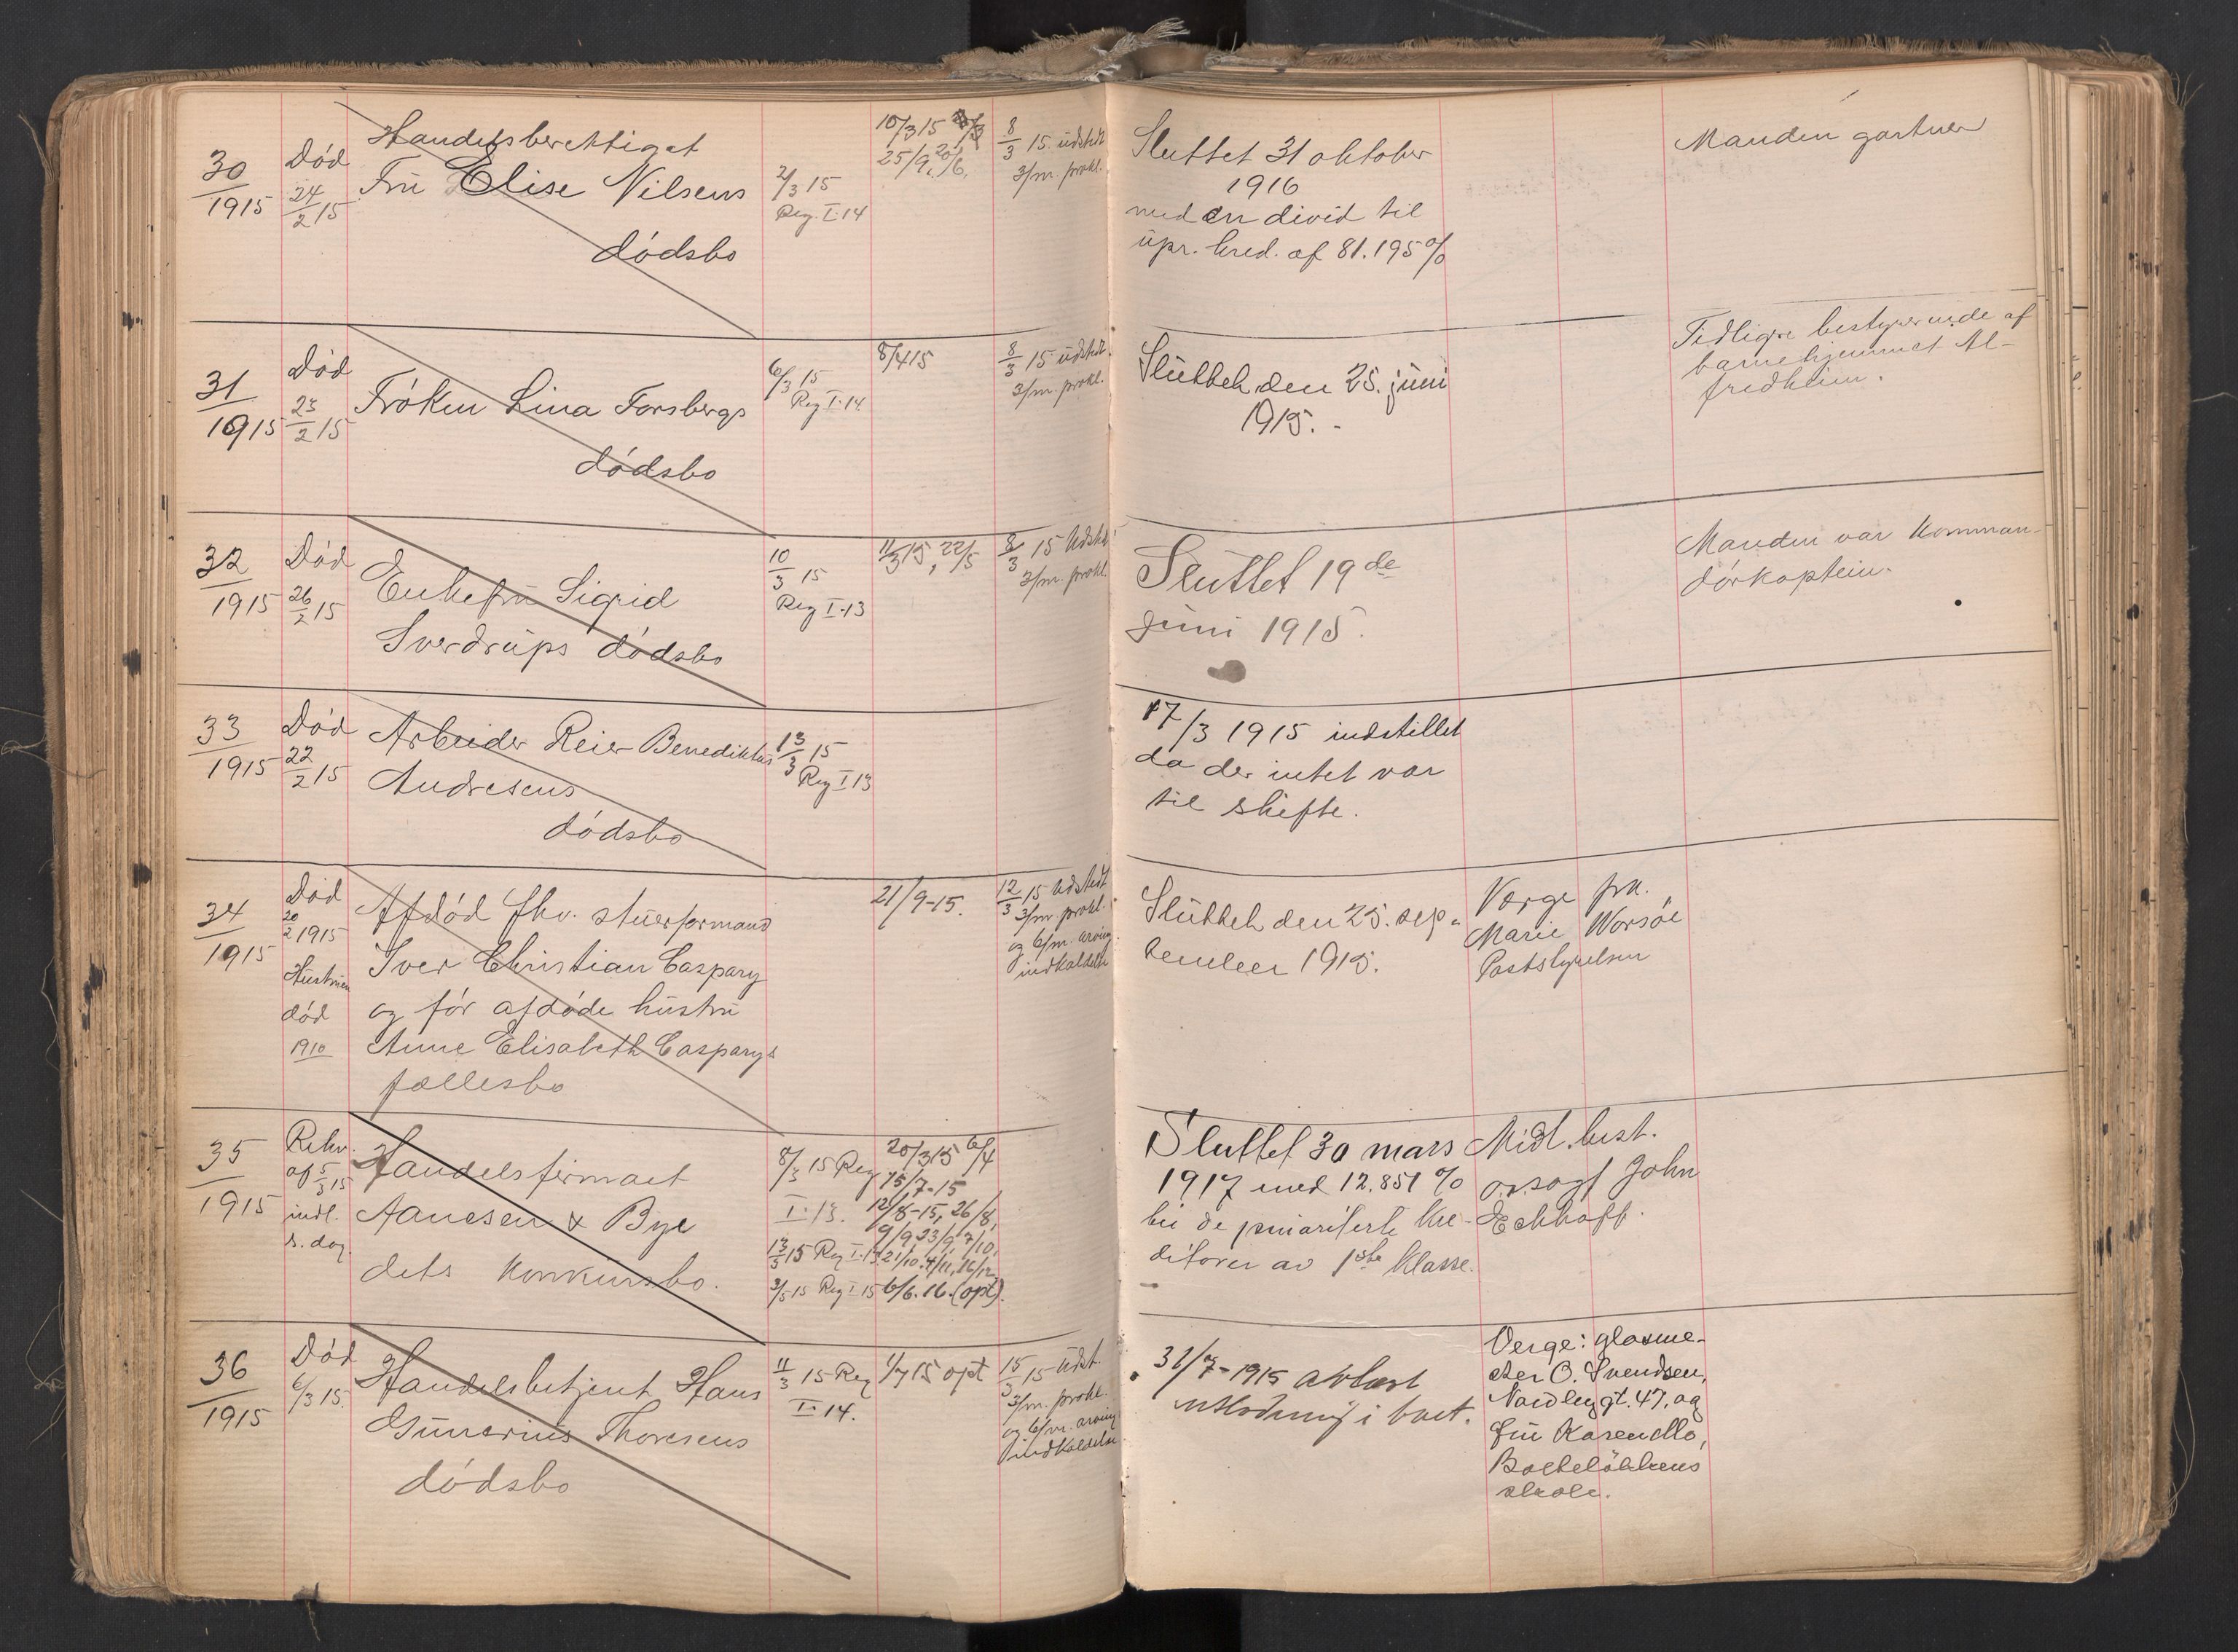 30
1915
Död
24/2 15
Handelsberettiget
Frü Elise Nilsens
dödsbo
2/3 15
Reg. I.14
10/3 15
25/9, 20/6,
8/3 15 üdstedt
3/m. prokl.
Sluttet 31 oktober
1916
med en divid til
üpr. kred. af 81.195 %
Manden gartner
31
1915
Död
23/2 15
Fröken Lina Forsbergs
dödsbo
6/3 15
Reg I.14
8/4 15
8/3 15 üdstedt
3/m. prokl.
Slüttet den 25. jüni
1915. -
Tidligre bestyrerinde af
barnehjemmet Al-
fredheim.
32
1915
Död
26/2 15
Enkefrü Sigrid
Sverdrüps dödsbo
10/3 15
Reg I.13
11/3 15, 22/5
8/3 15 Udstedt
3/m. prokl.
Slüttet 19de
Jüni 1915.
Manden var Komman-
dörkaptein.
33
1915
Död
22/2 15
Arbeider Reier Benediktus
Andresens
dödsbo
13/3 15
Reg I 13
17/3 1915 indstillet
da der intet var
til skifte.
34
1915
Död
20/2 1915
Hüstrüen
död
1910
Afdöd fhv. stüerformand
Iver Christian Caspary
og för afdöde hüstrü
Anne Elisabeth Casparys
fællesbo
21/9-15.
12/3 15 Udstedt
3/m prokl.
og 6/m. arving
indkaldelse
Slüttet den 25. sep-
tember 1915.
Værge frk.
Marie Worsöe
Poststyrelsen
35
1915
Rekv.
af 5/3 15
indl.
s. dag.
Handelsfirmaet
Aanesen & Bye
dets Konkursbo.
8/3 15 Reg
I.13.
13/3 15 Reg I.13
3/5 15 Reg I 15
20/3 15 6/4
15/7-15
12/8-15, 26/8,
9/9, 23/9, 7/10,
21/10, 4/11, 16/12
6/6.16.(opt).
Sluttet 30 mars
1917 med 12.851 %
til de prioriterte kre-
ditorer av 1ste klasse.
Midl. best.
o.r.sagf John
Eckhoff.
36
1915
Död
6/3 15.
Handelsbetjent Hans
Günerius Thoresens
dödsbo
11/3 15 Reg
I.14.
1/7 15 opt
15/3 15 Üdst.
3/m. prokl.
og 6/m. arving
indkaldelse
31/7-1915 avlæst
utlodning i boet.
Verge: glasme-
ster O. Svendsen,
gt. 47, og
frü Karen Mo,
skole.